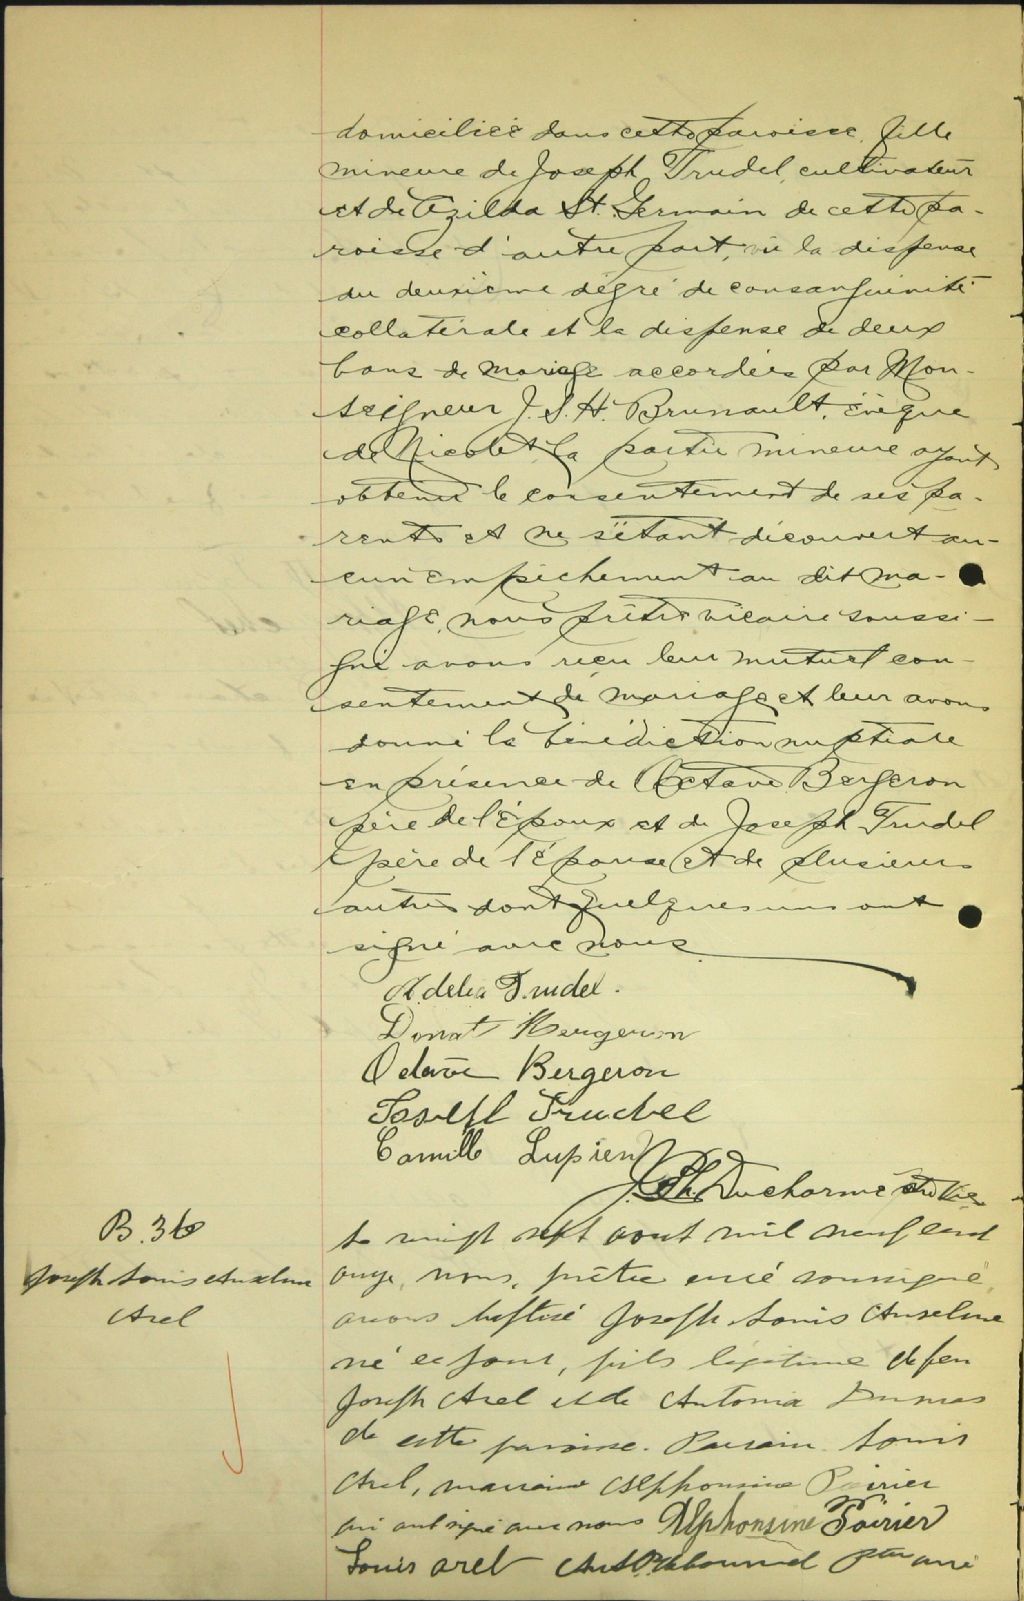 domiciliée dans cette paroisse, fille
mineure de Joseph Trudel, cultivateur
et de Azilda St. Germain de cette pa-
roisse d'autre part, vu la dispense
du deuxième dégré de consanguinité
collatérale et la dispense de deux
bans de mariage accordées par Mon-
seigneur J. S. H. Brunault, évêque
de Nicolet, la partie mineure ayant
obtenu le consentement de ses pa-
rents et ne s'étant découvert au-
cun empêchement au dit ma-
riage, nous prêtre vicaire soussi-
gné avons reçu leur mutuel con-
sentement de mariage et leur avons
donné la bénédiction nuptiale
en présence de Octave Bergeron
père de l'Époux et de Joseph Trudel
père de l'Épouse et de plusieurs
autres dont quelques uns ont
signé avec nous
Adelia Trudel.
Donat Bergeron
Octave Bergeron
Joseph Trudel
Camille Lupien
Ducharme ptre Vic.
B. 36
Joseph Louis Anselme
Arel
Le vingt sept aout mil neuf cent
onze, nous, prêtre curé soussigné,
avons baptisé Joseph Louis Anselme
né ce jour, fils légitime de feu
Joseph Arel et de Antonia Dumas
de cette paroisse. Parrain Louis
Arel, marraine Alphonsine Poirier
qui ont signé avec nous Alphonsine Poirier
Louis Arel ptre curé